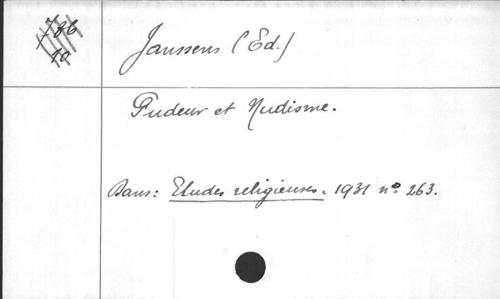 786
10
Janssens (Ed.)
Pudeur et Nudisme.
Dans: Etudes religieuses. 1931 nº 263.